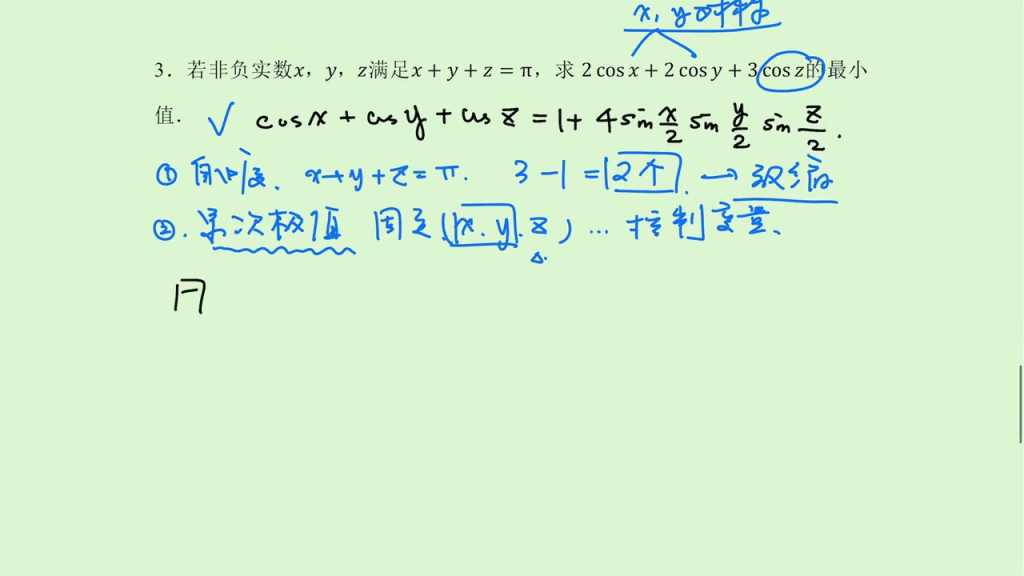 x, y 对称
3．若非负实数x，y，z满足x + y + z = π，求 2 cos x + 2 cos y + 3 cos z的最小
值．
√ cosx + cosy + cosz = 1 + 4 sin x/2 sin y/2 sin z/2 .
① 自由度、 x+y+z=π. 3-1=2个. → 放缩
②. 累次极值 固定(x.y).z) ... 控制变量、